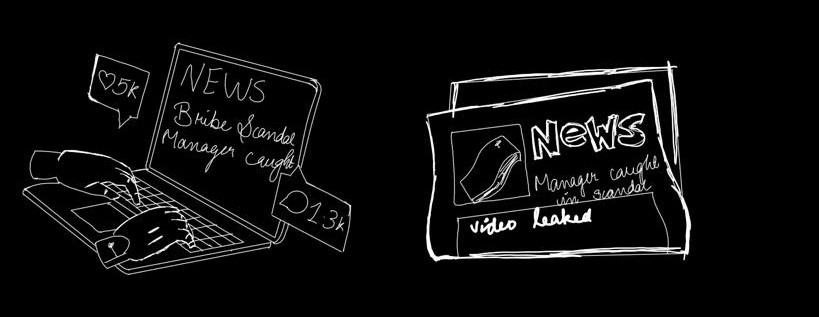 5k
NEWS
Bribe Scandal
Manager caught
1.3k
NeWS
Manager caught
in scandal
video leaked